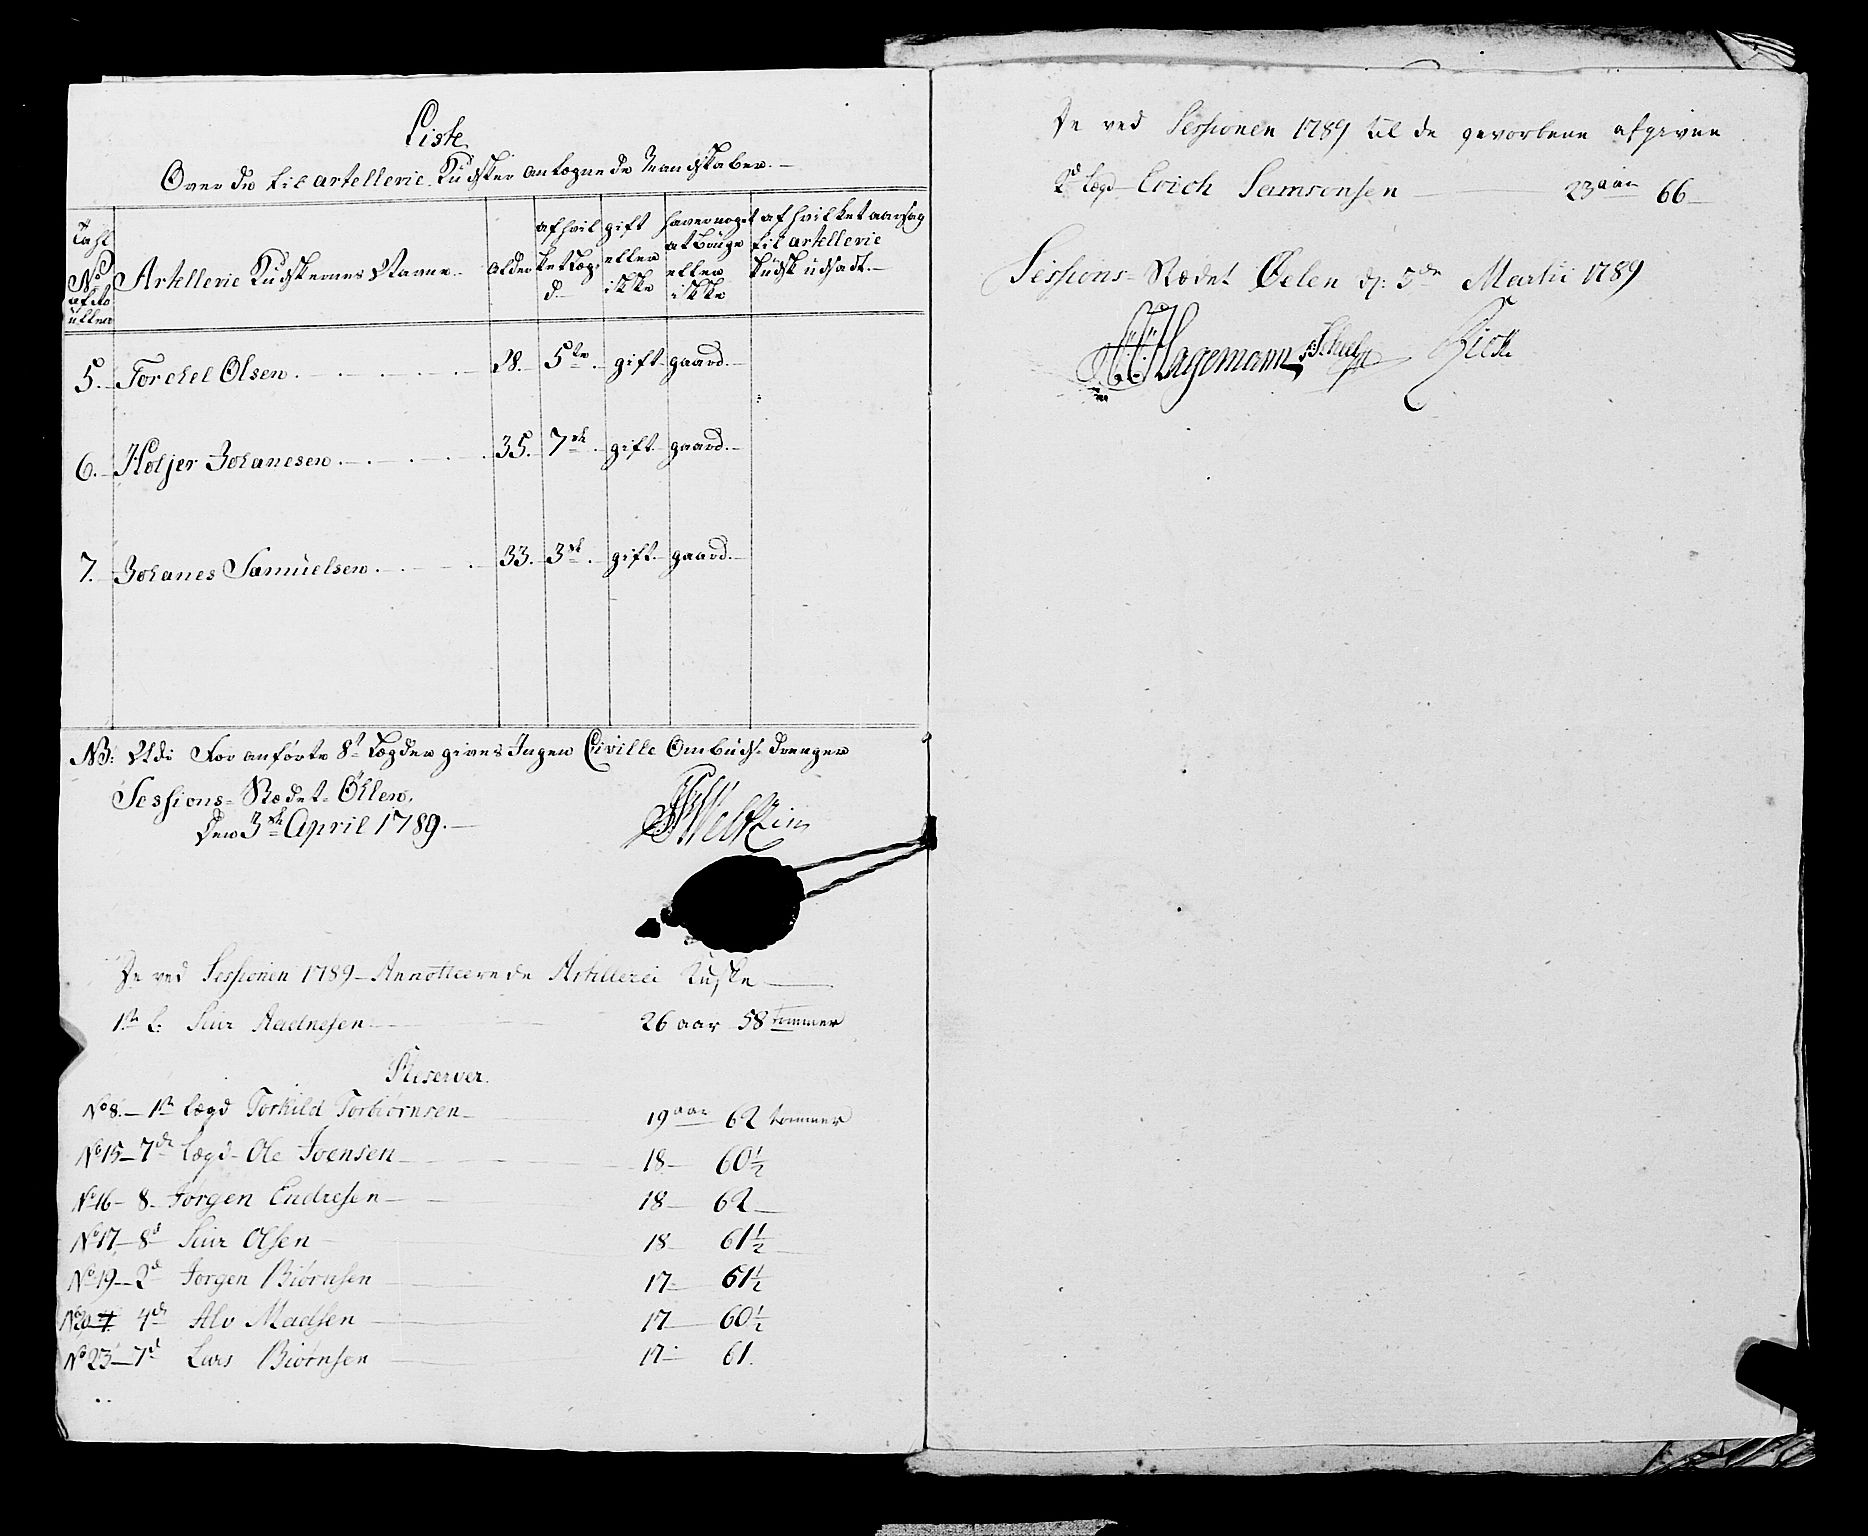 Liste
Over de til artellerie Kudsker antegnede Mandskaber.
Tahl No af to
Artellerie Kudskernes Navne
alder
af hvilket Læg d
gift eller ikke
haver noget at bruge eller ikke
af hvilket aarsag til artellerie Kudsk udsadt
5. Torckel Olsen 28. 5te gift gaard
6. Holjer Johanesen 35. 7de gift gaard
7. Johanes Samuelsen 33. 3de gift gaard
NB: Udi For anførte 8t Lægder gives Ingen Civille Ombuds Drenger
Sessions-Rædet Öhlen,
Den 3de April 1789.
De ved Sessionen 1789 Annotterede Artilleri Kuske
1te L: Siur Aadnesen 26 aar 58 tommer
Reserver.
No 8. 1te Lægd Torkild Torbiørnsen 19 aar 62 tommer
No 15 7de Lægd Ole Joensen 18 60½
No 16 8 Jørgen Endresen 18 62
No 17 8d Siur Olsen 18 61½
No 19 2d Jørgen Biørnsen 17 61½
No 20 4de Alv Madsen 17 60½
No 23 7d Lars Biørnsen 17 61.
De ved Sessionen 1789 til de gevorbene afgiven
2d Lægd Erich Samsonsen 23 aar 66
Sessions-Rædet Oelen d: 3de Martii 1789
Hagemann